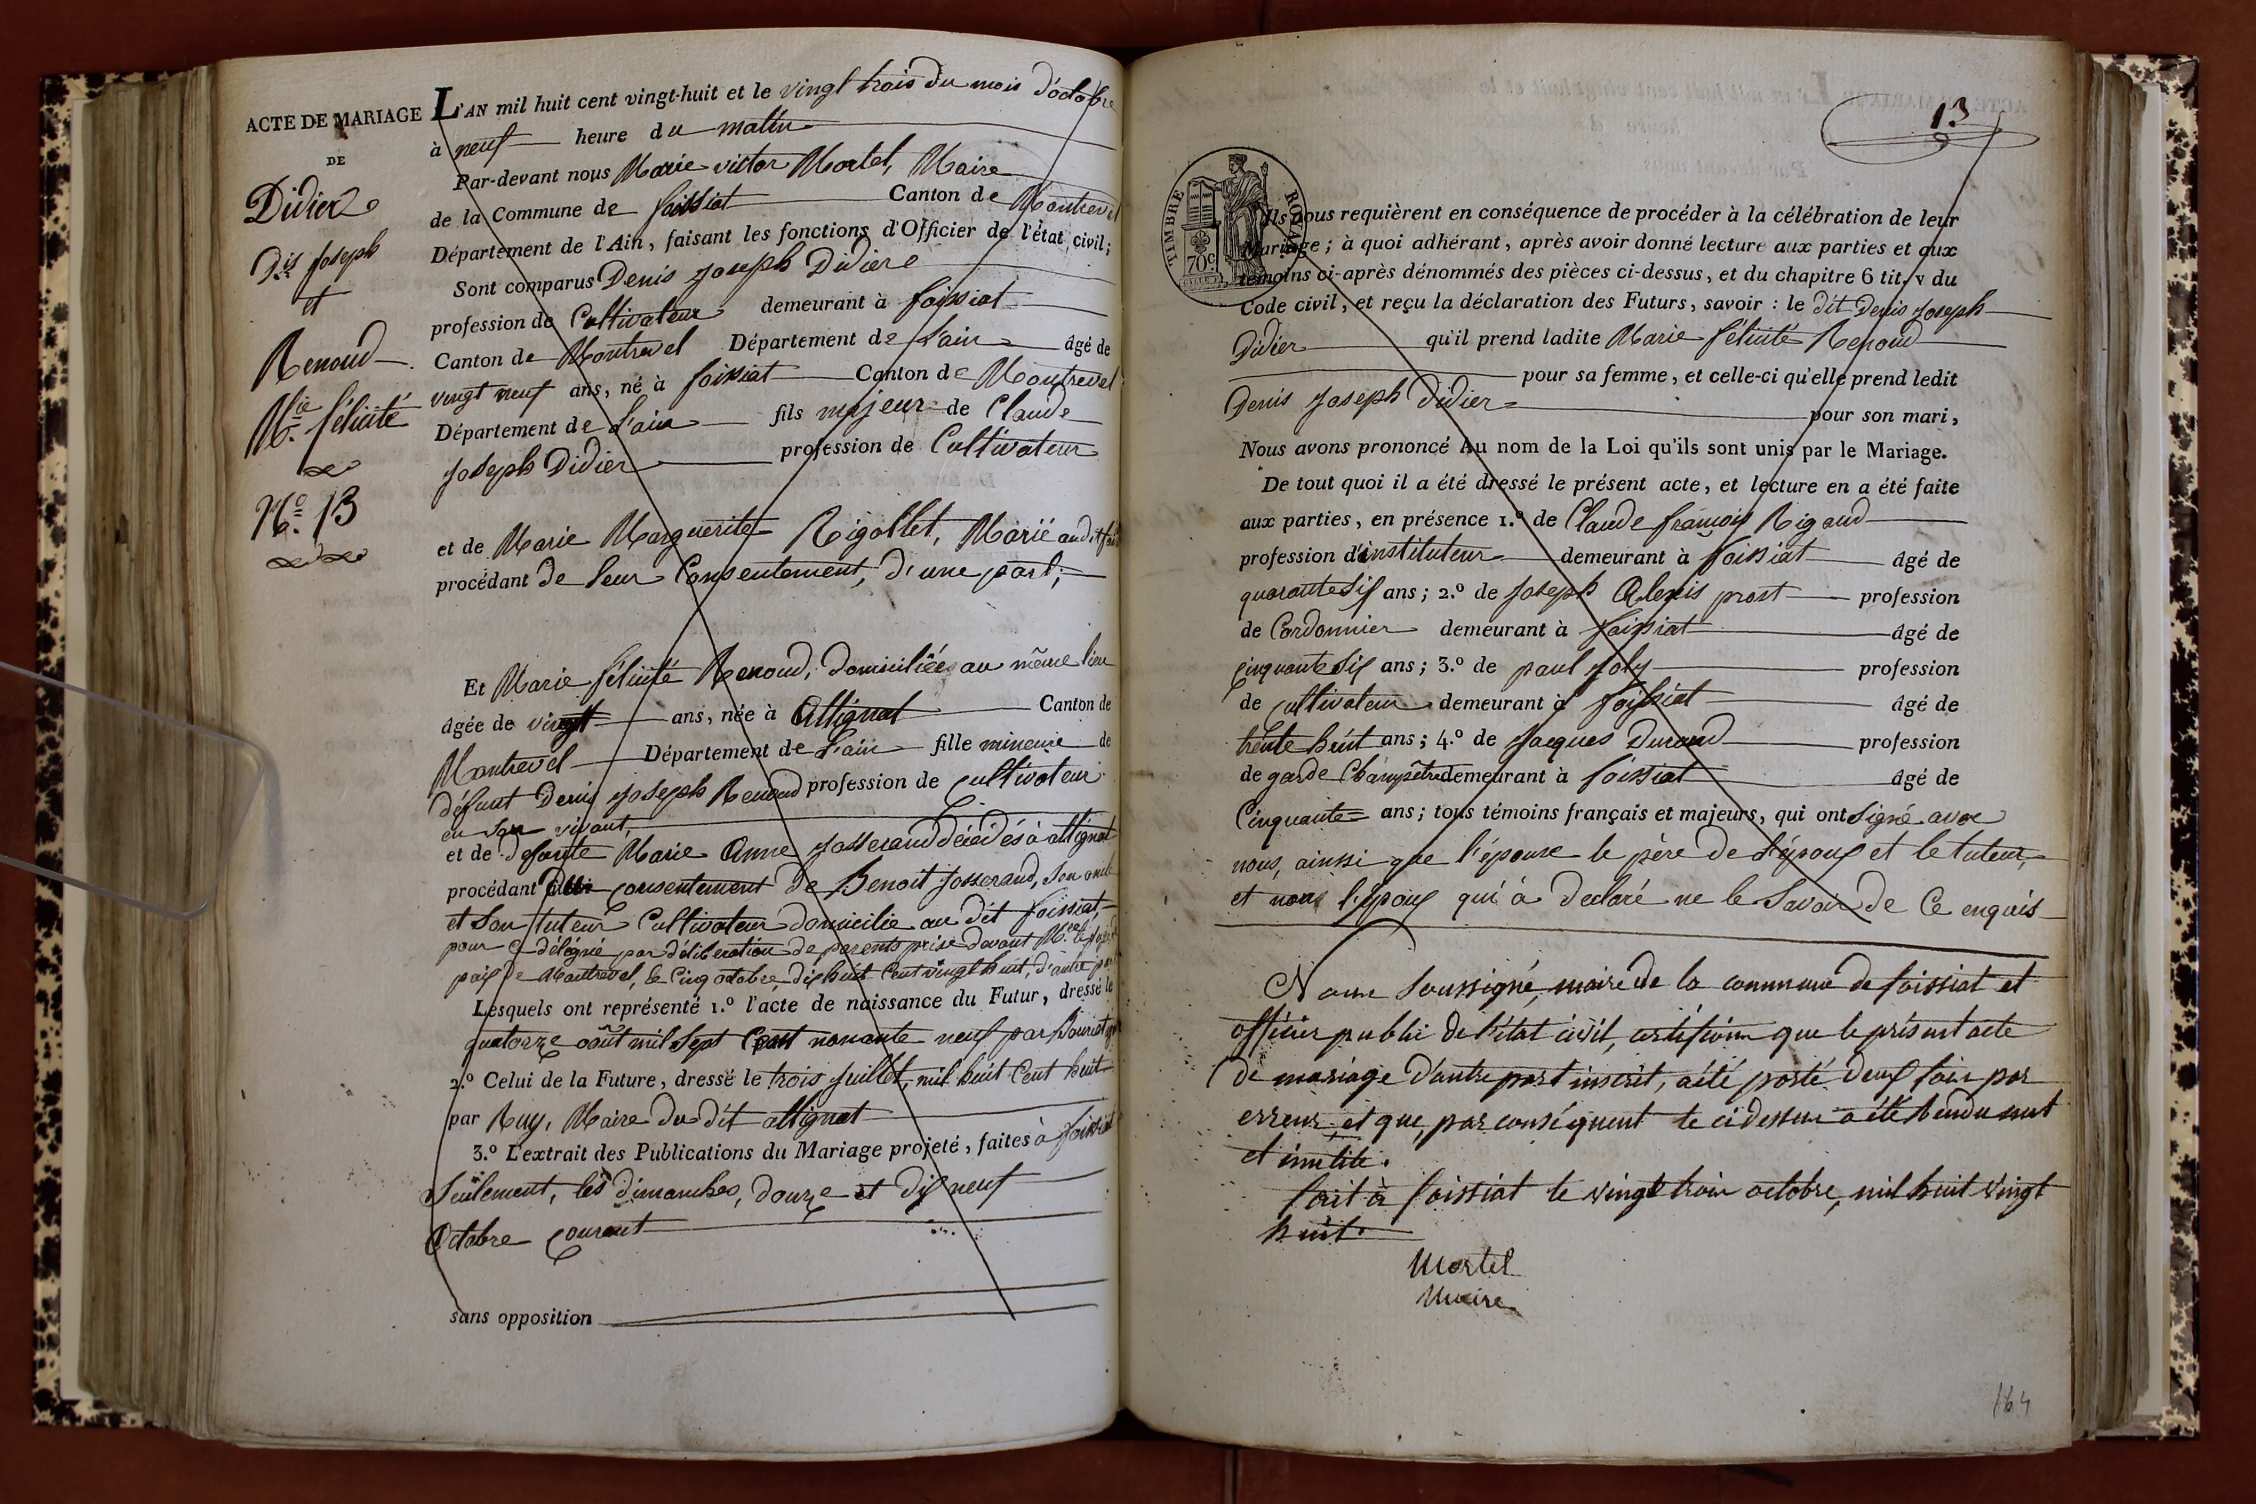 ACTE DE MARIAGE
DE
Didier
D.is Joseph
et
Renoud
M.ie félicité
N.o 13
L'AN mil huit cent vingt-huit et le vingt trois du mois d'octobre
à neuf heure du matin
Par-devant nous Marie victor Mortel, Maire
de la Commune de foissiat Canton de Montrevel
Département de l'Ain, faisant les fonctions d'Officier de l'état civil;
Sont comparus Denis Joseph Didier
profession de Cultivateur demeurant à foissiat
Canton de Montrevel Département de L'ain âgé de
vingt neuf ans, né à foissiat Canton de Montrevel
Département de L'ain fils majeur de Claude
Joseph Didier profession de Cultivateur
et de Marie Marguerite Rigollet, Marié audit
procédant de leur Consentement, d'une part;
Et Marie félicité Renoud, domiciliée au même lieu
âgée de vingt ans, née à Attignat Canton de
Montrevel Département de L'ain fille mineure de
défunt Denis Joseph Renoud profession de cultivateur
en son vivant,
et de defunte Marie Anne Josserand décédés à attignat
procédant du consentement de Benoit Josserand, son oncle
et son tuteur Cultivateur domicilié au dit foissiat,
pour ce délégué par délibération de parents prise devant Mr le juge de
paix de Montrevel, le Cinq octobre, dix huit Cent vingt huit, d'autre part
Lesquels ont représenté 1.º l'acte de naissance du Futur, dressé le
quatorze août mil sept Cent nonante neuf par
2.º Celui de la Future, dressé le trois juillet, mil huit Cent huit
par Ruy, Maire du dit attignat
3.º L'extrait des Publications du Mariage projeté, faites à foissiat
Seulement, les dimanches, douze et dix neuf
Octobre courant
sans opposition
13
TIMBRE ROYAL
70c
Ils nous requièrent en conséquence de procéder à la célébration de leur
Mariage; à quoi adhérant, après avoir donné lecture aux parties et aux
témoins ci-après dénommés des pièces ci-dessus, et du chapitre 6 tit. v du
Code civil, et reçu la déclaration des Futurs, savoir: le dit Denis Joseph
Didier qu'il prend ladite Marie félicité Renoud
pour sa femme, et celle-ci qu'elle prend ledit
Denis Joseph Didier pour son mari,
Nous avons prononcé Au nom de la Loi qu'ils sont unis par le Mariage.
De tout quoi il a été dressé le présent acte, et lecture en a été faite
aux parties, en présence 1.º de Claude françois Rigaud
profession d'instituteur demeurant à foissiat âgé de
quarante six ans; 2.º de Joseph Alexis prost profession
de Cordonnier demeurant à foissiat âgé de
cinquante six ans; 3.º de paul Joly profession
de cultivateur demeurant à foissiat âgé de
trente huit ans; 4.º de Jacques Durand profession
de garde Champêtre demeurant à foissiat âgé de
Cinquante ans; tous témoins français et majeurs, qui ont signé avec
nous, ainssi que l'épouse le père de l'époux et le tuteur,
et non l'époux qui a déclaré ne le Savoir de Ce enquis
Nous Soussigné, maire de la commune de foissiat et
officier public de l'état civil, certifions que le présent acte
de mariage d'autre part inscrit, a été porté deux fois par
erreur et que, par conséquent le ci dessus a été rendu nul
et inutile.
fait à foissiat le vingt trois octobre, mil huit vingt
huit.
Mortel
Maire
164